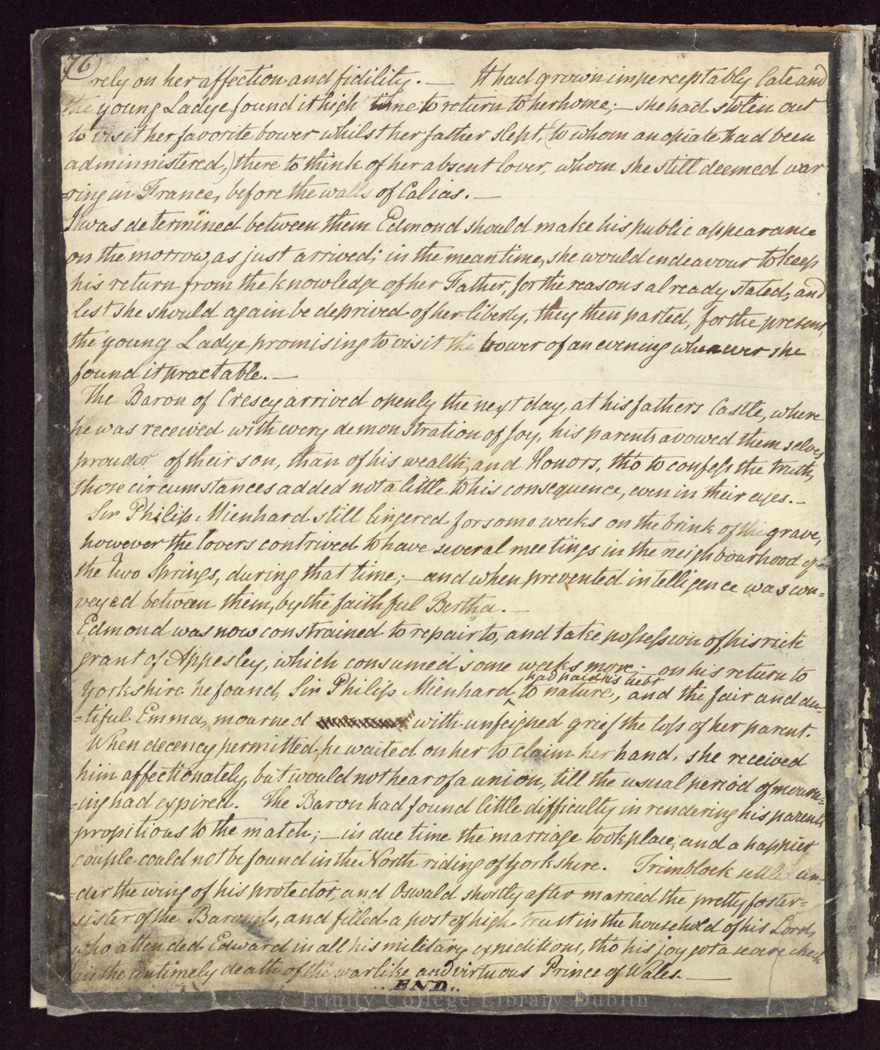 76
rely on her affection and fidility. — It had grown imperceptably late and
the young Ladye found it high time to return to her home; — she had stolen out
to visit her favorite bower whilst her father slept, (to whom an opiate had been
adminnistered,) there to think of her absent lover, whom she still deemed war
-ring in France, before the walls of Calias. —
I was determined between them Edmond should make his public appearance
on the morrow, as just arrived; in the meantime, she would endeavour to keep
his return from the knowledge of her Father, for the reasons already stated, and
lest she should again be deprived of her liberty, they then parted, for the present,
the young Ladye promising to visit the bower of an evening whenever she
found it practable. —
The Baron of Cressy arrived openly the next day, at his fathers Castle, where
he was received with every demonstration of Joy, his parents avowed themselves
prouder of their son, than of his wealth, and Honors, tho to confess the truth,
those circumstances added not a little to his consequence, even in their eyes. —
Sir Philip Mienhard still lingered for some weeks on the brink of the grave,
however the lovers contrived to have several meetings in the neighbourhood of
the Two Springs, during that time; — and when prevented intelligence was con=
veyed between them, by the faithful Bertha. —
Edmond was now constrained to repair to, and take possession of, his rich
grant of Appesley, which consumed some weeks more — on his return to
had paid his debt
Yorkshire he found, Sir Philip Mienhard ^ to nature, and the fair and du-
-tiful Emma, mourned with unfeigned grief the loss of her parent.
When decency permitted, he waited on her to claim her hand, she received
him affectionately, but would not hear of a union, till the usual period of mourn-
-ing had expired. The Baron had found little difficulty in rendering his parents
propitious to the match; — in due time the marriage took place, and a happier
couple could not be found in the North riding of Yorkshire. Trimblock un-
-der the wing of his protector, and Oswald shortly after married the pretty foster=
-sister of the and filled a post of high trust in the household of his Lord,
who attended Edward in all his military expeditions, tho his joy got a severe check
in the untimely death of the warlike and virtuous Prince of Wales. —
..END..
Trinity College Library Dublin